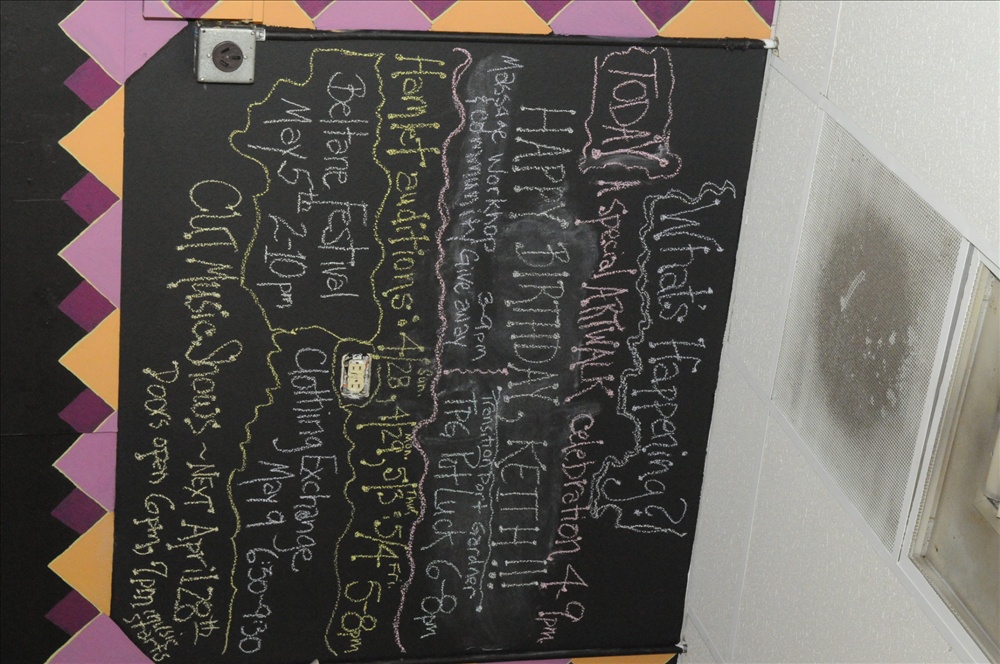 What's Happening?
TODAY A special ARTWALK celebration 4-9pm
HAPPY BIRTHDAY, KEITH!!!
Massage Workshop 3-9pm
& Community Giveaway
Transition Port Gardner
TPG Potluck 6-8pm
Hamlet auditions: 4/28 Sun, 4/29, 5/3 Thur, 5/4 Fri. 5-8pm
Beltane Festival
May 5th 2-10pm
Clothing Exchange
May 9 6:30-9:30
CLM Music Shows ~ NEXT APRIL 28th
Doors open 6pm, 7pm music starts